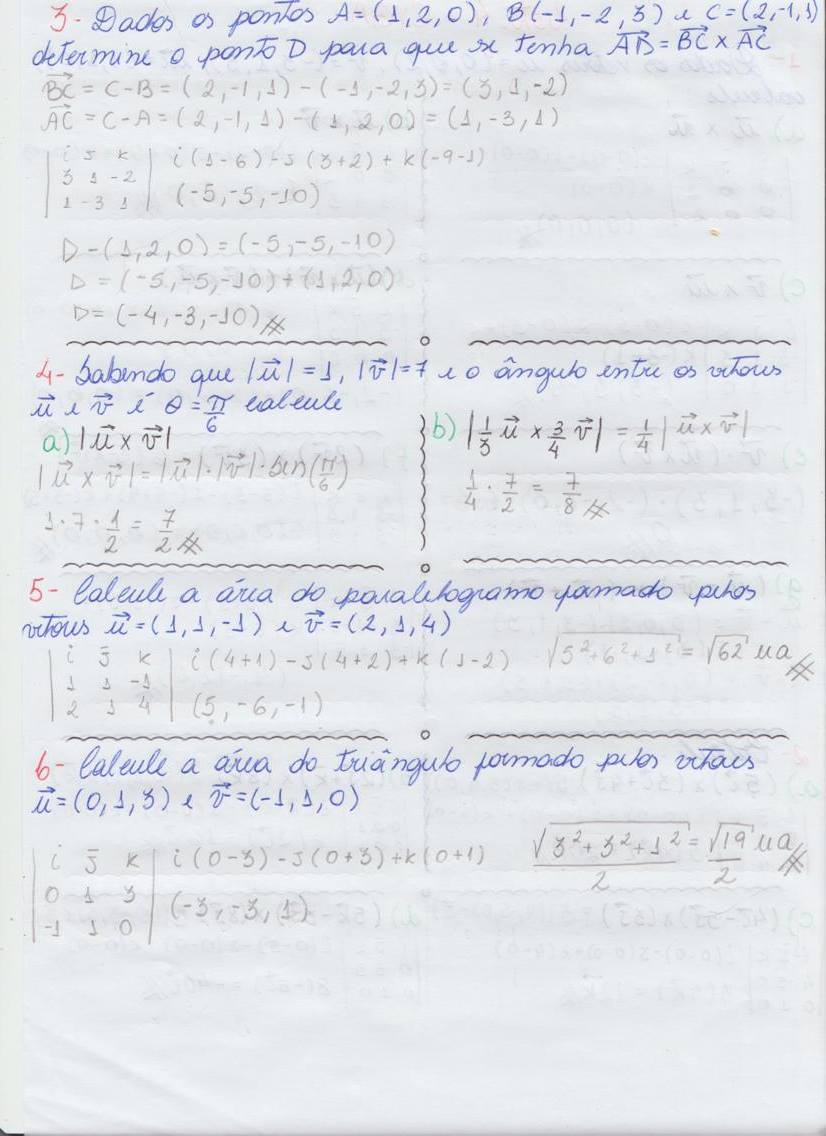 3- Dados os pontos A=(1,2,0), B(-1,-2,3) e C=(2,-1,1)
determine o ponto D para que se tenha AD=BC×AC
BC = C-B = (2,-1,1) - (-1,-2,3) = (3,1,-2)
AC = C-A = (2,-1,1) - (1,2,0) = (1,-3,1)
i j k
3 1 -2
1 -3 1
i(1-6) - j(3+2) + k(-9-1)
(-5,-5,-10)
D-(1,2,0) = (-5,-5,-10)
D = (-5,-5,-10)+(1,2,0)
D = (-4,-3,-10)
4- Sabendo que |u|=1, |v|=7 e o ângulo entre os vetores
u e v é θ = π/6 calcule
a) |u×v|
|u×v| = |u|·|v|·sen(π/6)
1·7·1/2 = 7/2
b) |1/3 u × 3/4 v| = 1/4 |u×v|
1/4 · 7/2 = 7/8
5- Calcule a área do paralelogramo formado pelos
vetores u=(1,1,-1) e v=(2,1,4)
i j k
1 1 -1
2 1 4
i(4+1) - j(4+2) + k(1-2)
(5,-6,-1)
√5²+6²+1² = √62 ua
6- Calcule a área do triângulo formado pelos vetores
u=(0,1,3) e v=(-1,1,0)
i j k
0 1 3
-1 1 0
i(0-3) - j(0+3) + k(0+1)
(-3,-3,1)
√3²+3²+1²/2 = √19/2 ua